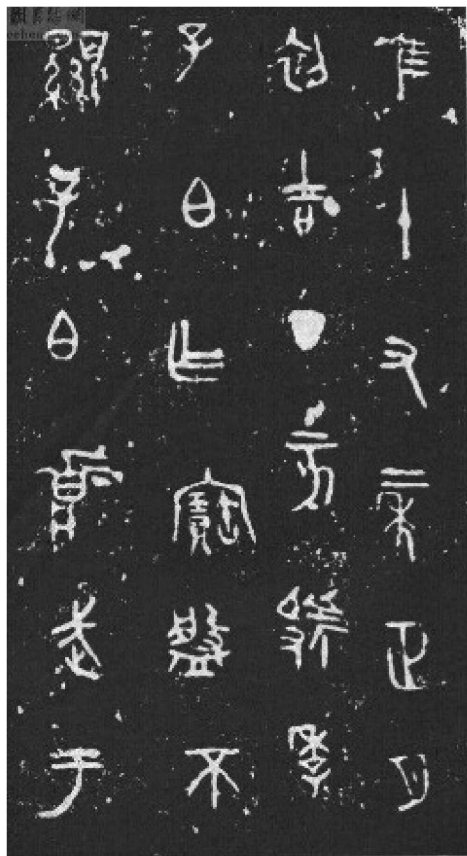 隹十又二年正月
初吉丁亥虢季
子白乍寶盤不
顯子白武于